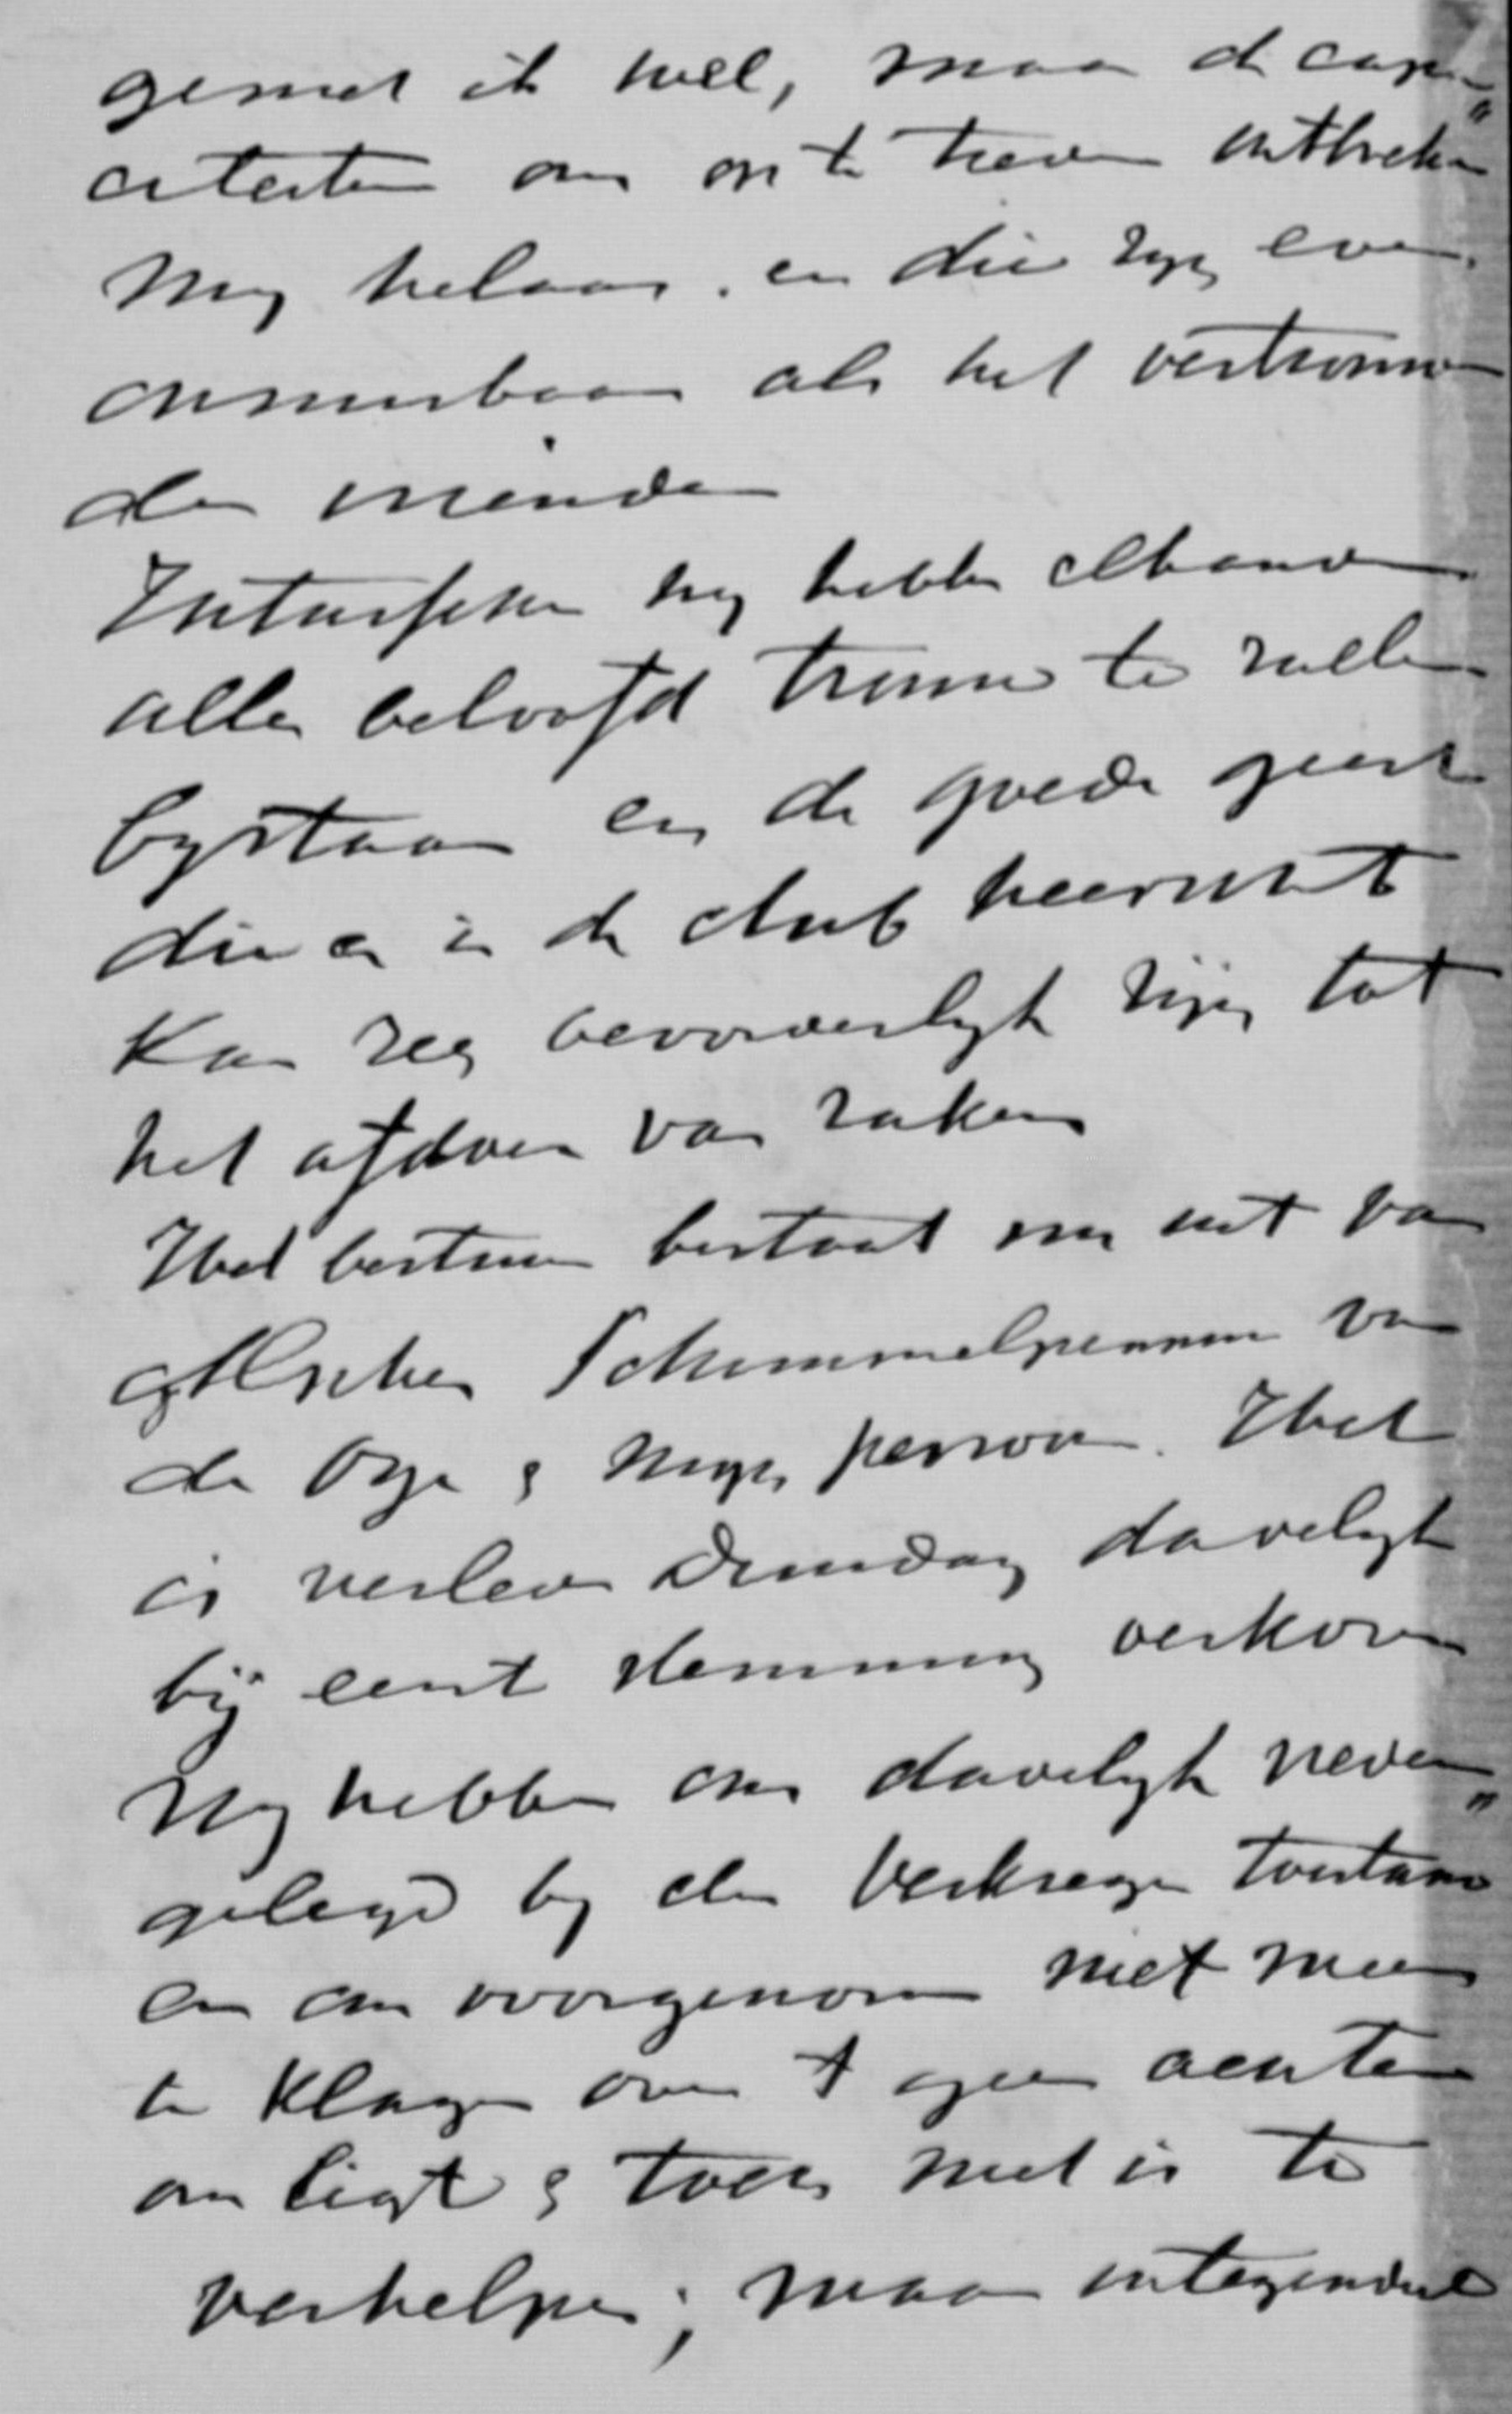 geniet ik wel, maar de capa„
citeiten om op te treden ontbreken
my helaas. en die zyn even
onmisbaar als het vertrouwen
der vrienden
Intusschen zy hebben elkander
allen beloofd trouw te zullen
bystaan en de goede geest
die er in de club heerscht
kan zeer bevorderlyk zijn tot
het afdoen van zaken
Het bestuur bestaat nu uit van
Asscher Schimmelpenninck van
der Oye & myn persoon. Het
is verleden Dinsdag dadelyk
bij eerste stemming verkoren
Wy hebben ons dadelyk neder„
gelegd by den verkregen toestand
en ons voorgenomen niet meer
te klagen over 't geen achter
ons ligt & toch niet is te
verhelpen; maar integendeel